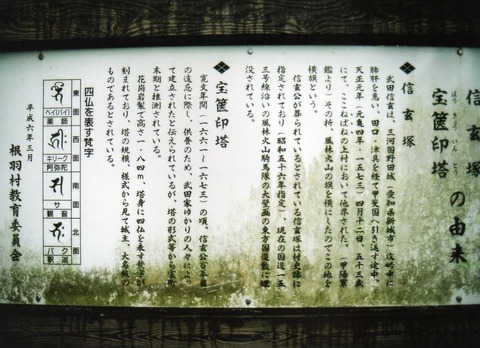 信玄塚
宝篋印塔
ほうきょういんとう
の由来
信玄塚
武田信玄は、三河国野田城(愛知県新城市)攻略中に
肺肝を患い、田口、津具を経て甲斐国へ引き返す途中、
天正元年(元亀四年、一五七三)四月十二日、五十三歳
にて、ここねばねの上村において他界された。(甲陽軍
鑑より)その折、風林火山の旗を横にしたのでこの地を
横旗という。
信玄公が葬られているとされている信玄塚は村史跡に
指定されており(昭和五十六年指定)、現在の国道一五
三号線沿いの風林火山騎馬隊の大壁画の東方国道敷に埋
没されている。
宝篋印塔
寛文年間(一六六一~一六七三)の頃、信玄公百年目
の遠忌に際し、供養のため、武田家ゆかりの人々によっ
て建立されたと伝えられているが、塔の形式等から室町
末期と推測されている。
花崗岩製で高さ一・八四m、塔身に四仏を表す梵字が
刻まれており、塔の規模、様式から見て城主、大名級の
ものであるとされている。
四仏を表す梵字
東面
ベイ(バイ)
薬師
西面
キリーク
阿弥陀
南面
サ
観音
北面
バク
釈迦
平成六年三月
根羽村教育委員会